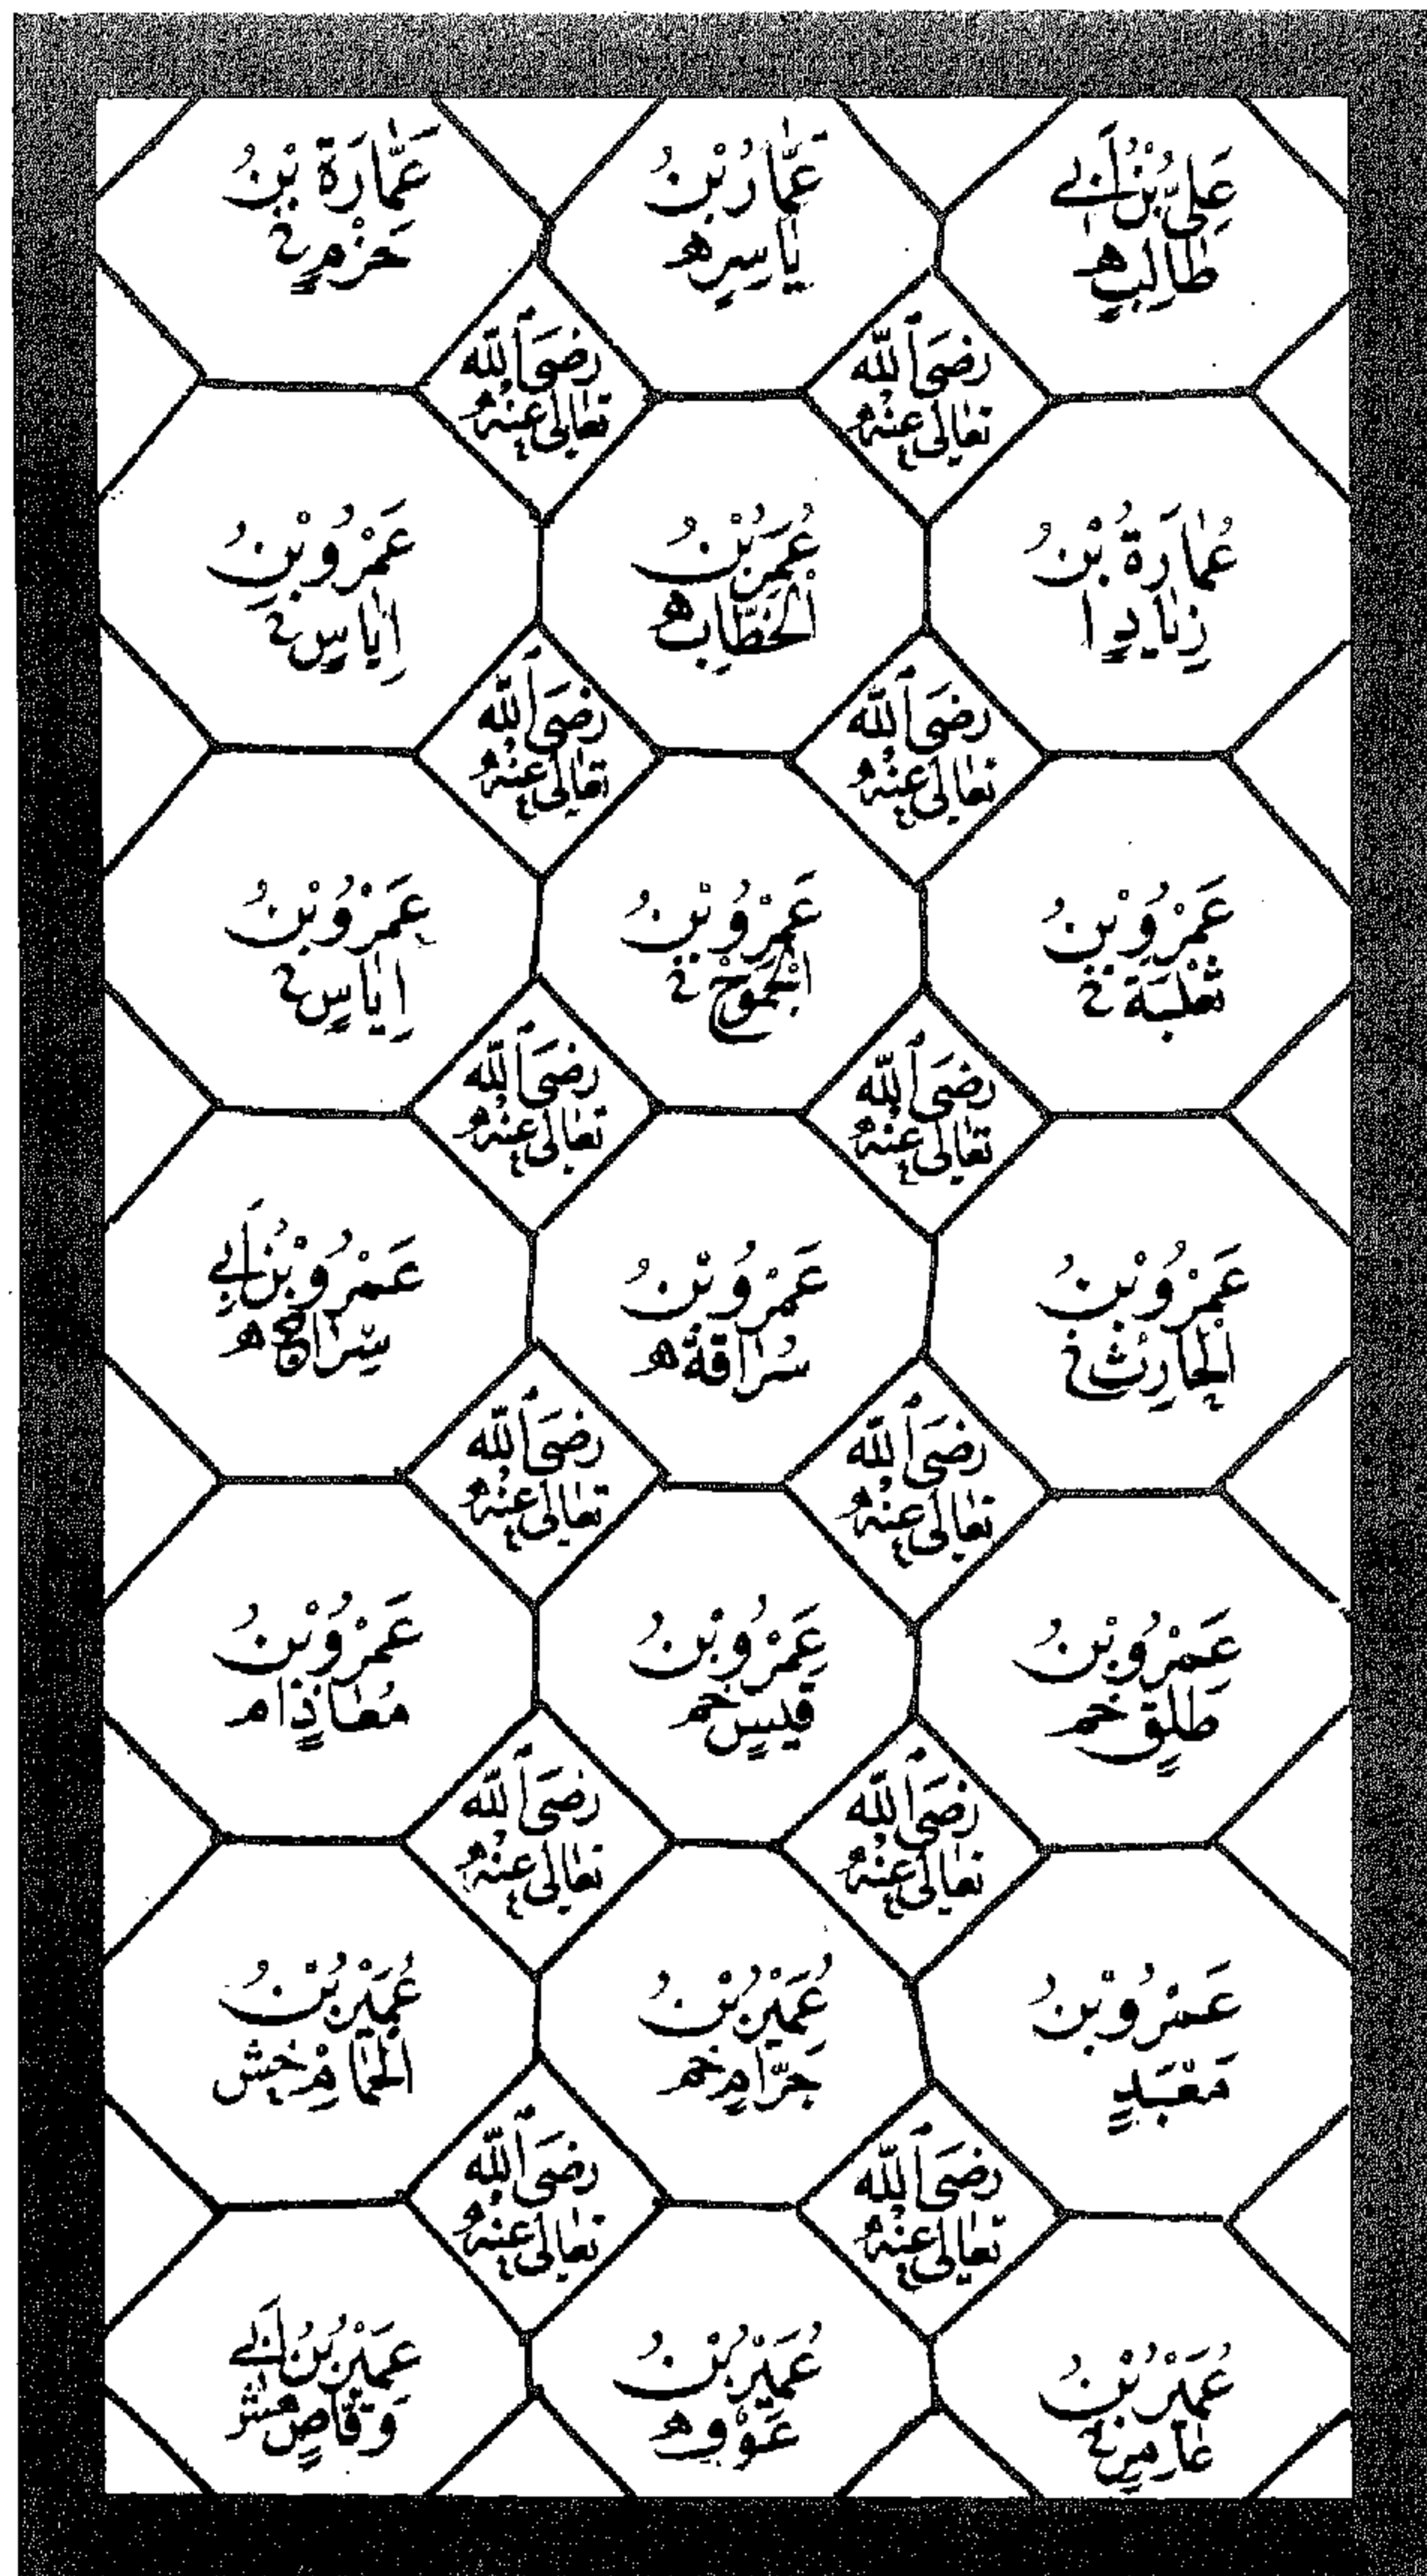 عَلِيُّ بْنُ أَبِي
طَالِبٍ ه
عَمَّارُ بْنُ
يَاسِرٍ ه
عَمَّارَةُ بْنُ
حَزْمٍ خ
رَضِيَ اللّٰهُ
تَعَالٰى عَنْهُ
رَضِيَ اللّٰهُ
تَعَالٰى عَنْهُ
عُمَارَةُ بْنُ
زِيَادٍ ا
عُمَرُ بْنُ
الْخَطَّابِ ه
عَمْرُو بْنُ
إِيَاسٍ خ
رَضِيَ اللّٰهُ
تَعَالٰى عَنْهُ
رَضِيَ اللّٰهُ
تَعَالٰى عَنْهُ
عَمْرُو بْنُ
ثَعْلَبَةَ خ
عَمْرُو بْنُ
الْجَمُوحِ خ
عَمْرُو بْنُ
إِيَاسٍ خ
رَضِيَ اللّٰهُ
تَعَالٰى عَنْهُ
رَضِيَ اللّٰهُ
تَعَالٰى عَنْهُ
عَمْرُو بْنُ
الْحَارِثِ خ
عَمْرُو بْنُ
سُرَاقَةَ ه
عَمْرُو بْنُ أَبِي
سِرَاحٍ ه
رَضِيَ اللّٰهُ
تَعَالٰى عَنْهُ
رَضِيَ اللّٰهُ
تَعَالٰى عَنْهُ
عَمْرُو بْنُ
طَلْقٍ خم
عَمْرُو بْنُ
قَيْسٍ خم
عَمْرُو بْنُ
مُعَاذٍ ام
رَضِيَ اللّٰهُ
تَعَالٰى عَنْهُ
رَضِيَ اللّٰهُ
تَعَالٰى عَنْهُ
عَمْرُو بْنُ
مَعْبَدٍ
عُمَيْرُ بْنُ
حَرَامٍ خم
عُمَيْرُ بْنُ
الْحُمَامِ خش
رَضِيَ اللّٰهُ
تَعَالٰى عَنْهُ
رَضِيَ اللّٰهُ
تَعَالٰى عَنْهُ
عُمَيْرُ بْنُ
عَامِرٍ خ
عُمَيْرُ بْنُ
عَوْفٍ ه
عُمَيْرُ بْنُ أَبِي
وَقَّاصٍ هش